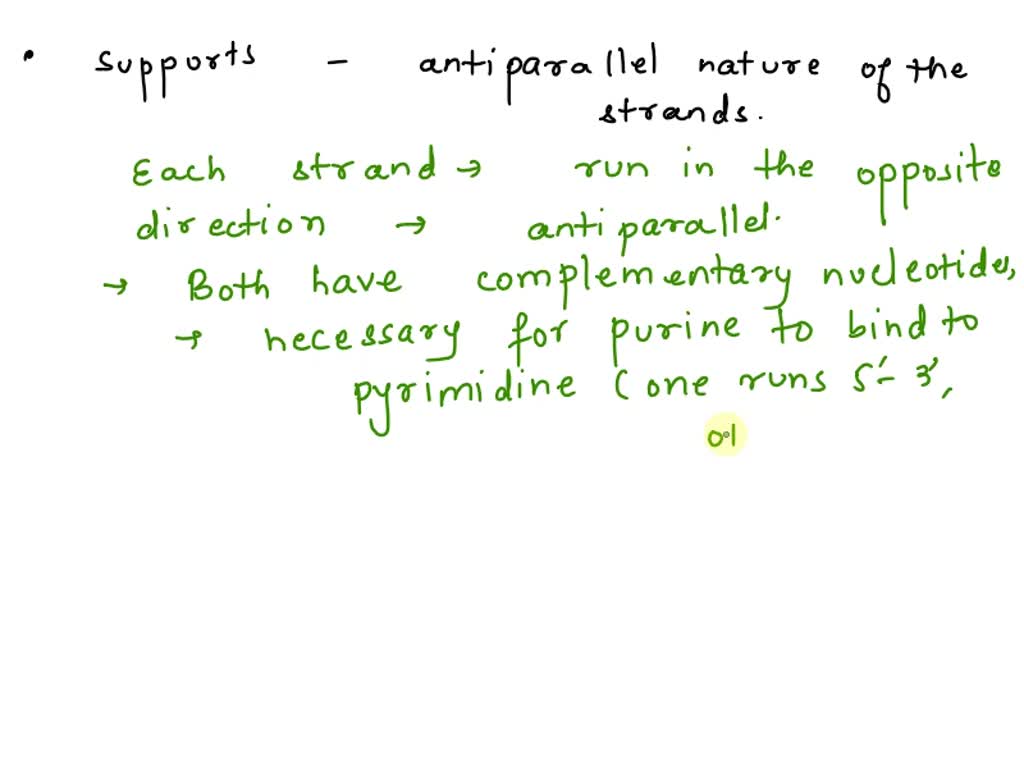 • supports - antiparallel nature of the
strands.
Each strand → run in the opposite
direction → antiparallel.
→ Both have complementary nucleotides,
→ necessary for purine to bind to
pyrimidine (one runs 5'- 3',